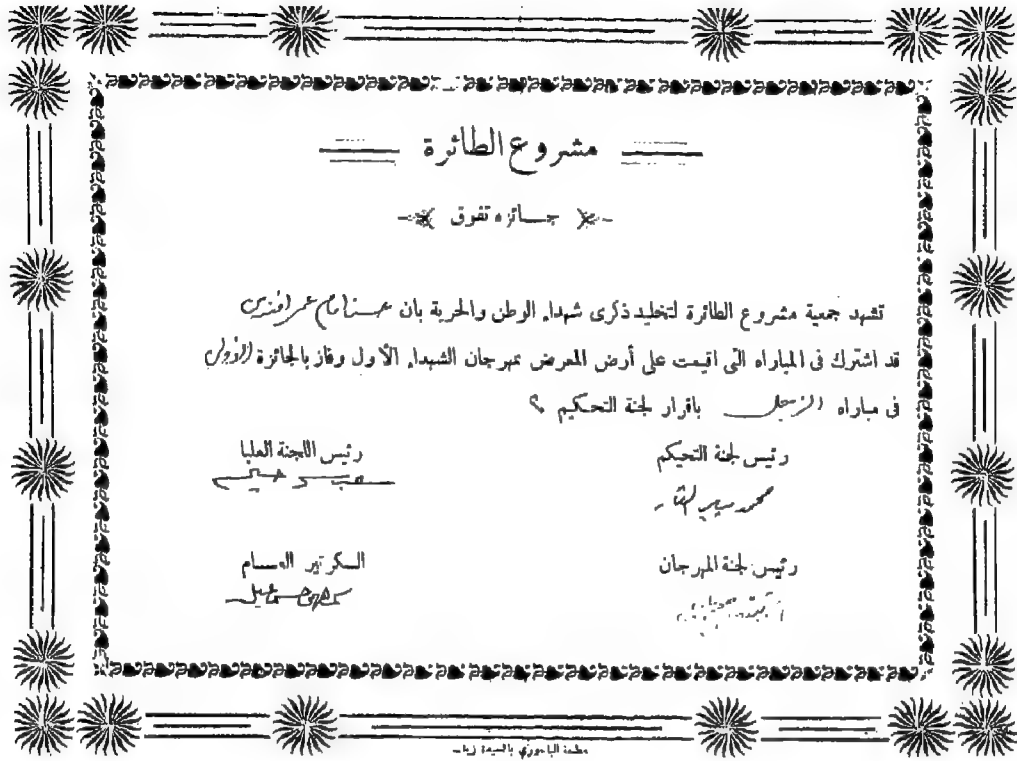 مشروع الطائرة
جائزه تفوق
تشهد جمعية مشروع الطائرة لتخليد ذكرى شهداء الوطن والحرية بان امام عمر افندى
قد اشترك فى المباراه التى اقيمت على أرض المعرض بمهرجان الشهداء الأول وفاز بالجائزة الأولى
فى مباراه الزجل باقرار لجنة التحكيم
رئيس لجنة التحيكم
رئيس اللجنة العليا
محمد
رئيس لجنة المهرجان
السكرتير العام
مطبعة الباجورى بالسيدة زينب